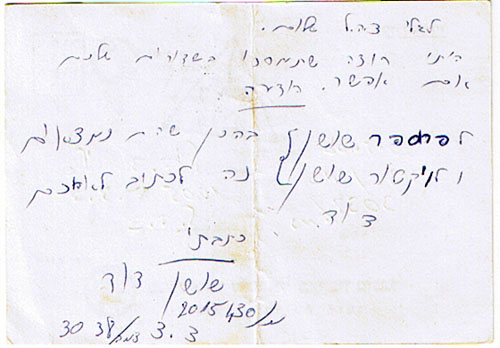 לגלי צה"ל שלום.
הייתי רוצה שתמסרו בשדורים שלכם
אם אפשר. הודעה
לפרוספר שושן בהכן שהם נמצאים
ולויקטור שושן נה לכתוב לאחיכם
דוד
כתבתי
שושן דוד
מ/2015430
ד.צ. 3038/צהל